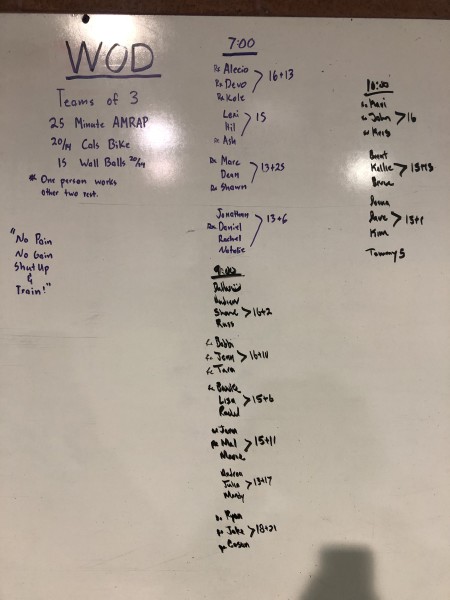 WOD
Teams of 3
25 Minute AMRAP
20/14 Cals Bike
15 Wall Balls 20/14
* One person works
other two rest.
"No Pain
No Gain
Shut Up
&
Train!"
7:00
Rx Alecio
Rx Devo > 16+13
Rx Kole
Lexi
Hil > 15
Ash
Rx Marc
Dean > 13+25
Rx Shawn
Jonathan
Rx Daniel > 13+6
Rachel
Natalie
9:00
Andrew
Shane > 16+2
Russ
Bobbi
Jenn > 16+11
Tara
Lisa > 15+6
Rachel
Jenn
Mal > 15+11
Andrea
Julia > 13+17
Mandy
Ryan
Jake > 18+21
10:00
Kari
John > 16
Kris
Brent
Kellie > 15+15
Bruce
Dave > 13+1
Kim
Tommy 5